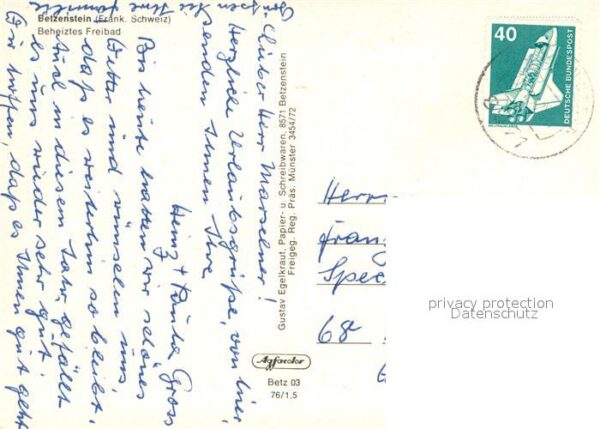 Betzenstein (Fränk. Schweiz)
Beheiztes Freibad
Lieber Herr Marselner!
Herzliche Urlaubsgrüße, von hier,
senden Ihnen Ihre
Heinz + Paula Gross
Bis heute hatten wir schönes
Wetter und wünschen uns,
daß es weiterhin so bleibt.
Auch in diesem Jahr gefällt
es uns wieder sehr gut.
Wir hoffen, daß es Ihnen gut geht
Grüßen Sie Ihre Familie
Gustav Egelkraut, Papier- u. Schreibwaren, 8571 Betzenstein
Freigeg. Reg. Präs. Münster 3454/72
Agfacolor
Betz 03
76/1,5
40
DEUTSCHE BUNDESPOST
Herrn
Fran
Spec
68
privacy protection
Datenschutz